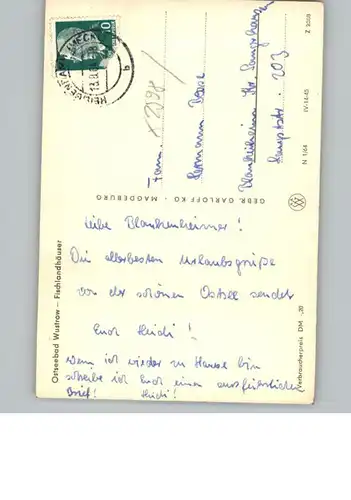 Liebe Blankenheimer!
Die allerbesten Urlaubsgrüße
von der schönen Ostsee sendet
Euch Heidi!
Wenn ich wieder zu Hause bin
schreibe ich Euch einen ausführlichen
Brief! Heidi!
Fam.
Hermann
Blankenheim Kr. Sangerhausen
Hauptstr. 203
GEBR. GARLOFF KG · MAGDEBURG
N 1/64
IV-14-45
Z 2008
Ostseebad Wustrow – Fischlandhäuser
Verbraucherpreis DM -,20
10